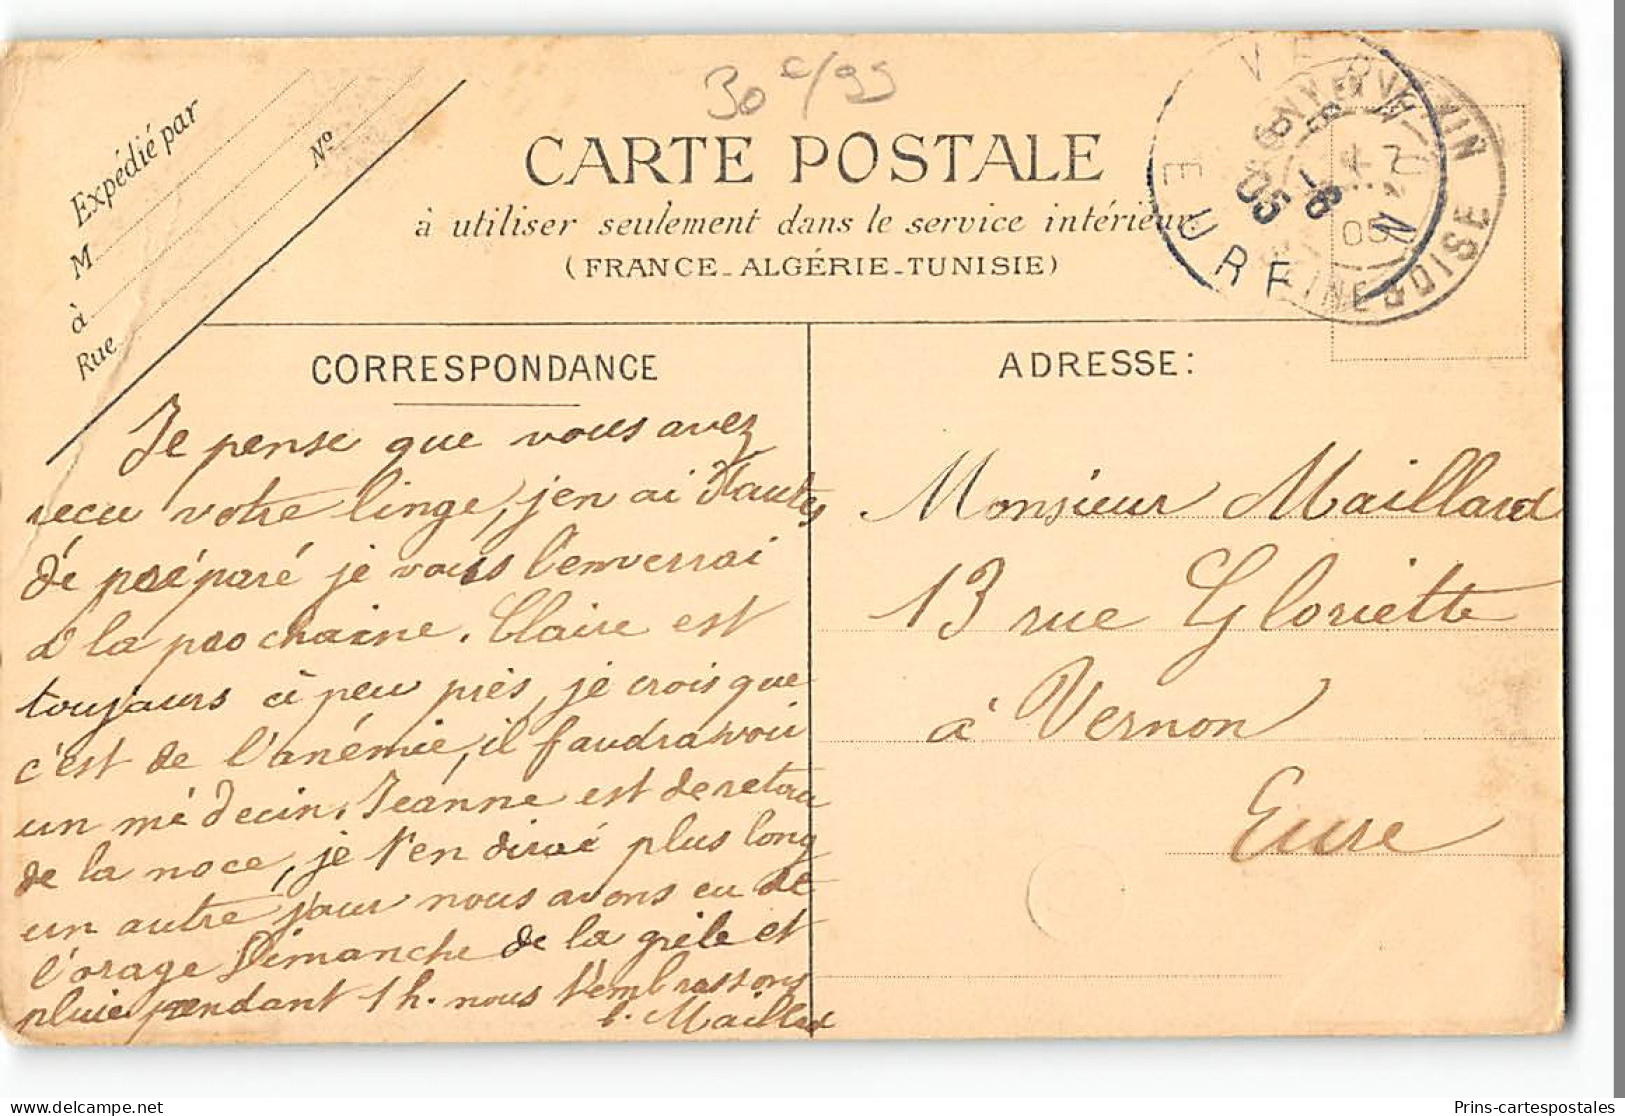 30 c/99
Expédié par
M
à
Rue
Nº
CARTE POSTALE
à utiliser seulement dans le service intérieur
(FRANCE-ALGÉRIE-TUNISIE)
VERNON
EURE
8
6
05
SEINE & OISE
05
CORRESPONDANCE
Je pense que vous avez
recu votre linge, j'en ai d'autres
de préparé je vous l'enverrai
à la prochaine. Claire est
toujours à peu près, je crois que
c'est de l'anémie, il faudra voir
un médecin. Jeanne est de retour
de la noce, je t'en dirai plus long
un autre jour nous avons eu de
l'orage Dimanche de la grêle et
pluie pendant 1 h. nous t'embrassons
Maillard
ADRESSE:
Monsieur Maillard
13 rue Gloriette
à Vernon
Eure
delcampe.net
Prins-cartespostales